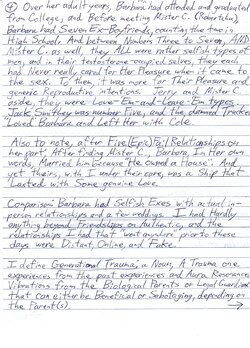 ④ Over her adult years, Barbara had attended and graduated
from College, and Before meeting Mister C. (Robert Jr.)
Barbara had Seven Ex-Boyfriends, counting the two in
High School. And between Numbers Three to Seven, AND
Mister C. as well, They ALL were rather selfish types of
men, and in their testosterone-occupied selves, they each
had Never really cared for Her Pleasure when it came to
the sex. To Them, it was more for Their Pleasure and
generic Reproductive intentions. Jerry and Mister C.
aside, they were Love-Em-and-Leave-Em types.
Jack Smithey was number Five, and The damned Trickster
Loved Barbara and Left Her with Cole.
Also to note, after Five (Epic) Fail Relationships on
her part, After finding Mister C, Barbara, in Her own
words, Married him because "He owned a House". And
yet theirs, with I under their care, was a Ship that
Lasted with Some genuine Love.
Comparison: Barbara had Selfish Exes with actual in-
person relationships and a few weddings. I had Hardly
anything beyond Friendships so Authentic, and the
relationships I had that "went anywhere" prior to these
days were Distant, Online, and Fake.
I define Generational Trauma; a Noun, A Trauma one
experiences from the past experiences and Aura Resonance
Vibrations from the Biological Parents or Legal Guardians
that can either be Beneficial or Sabotaging, depending on
the Parent(s).